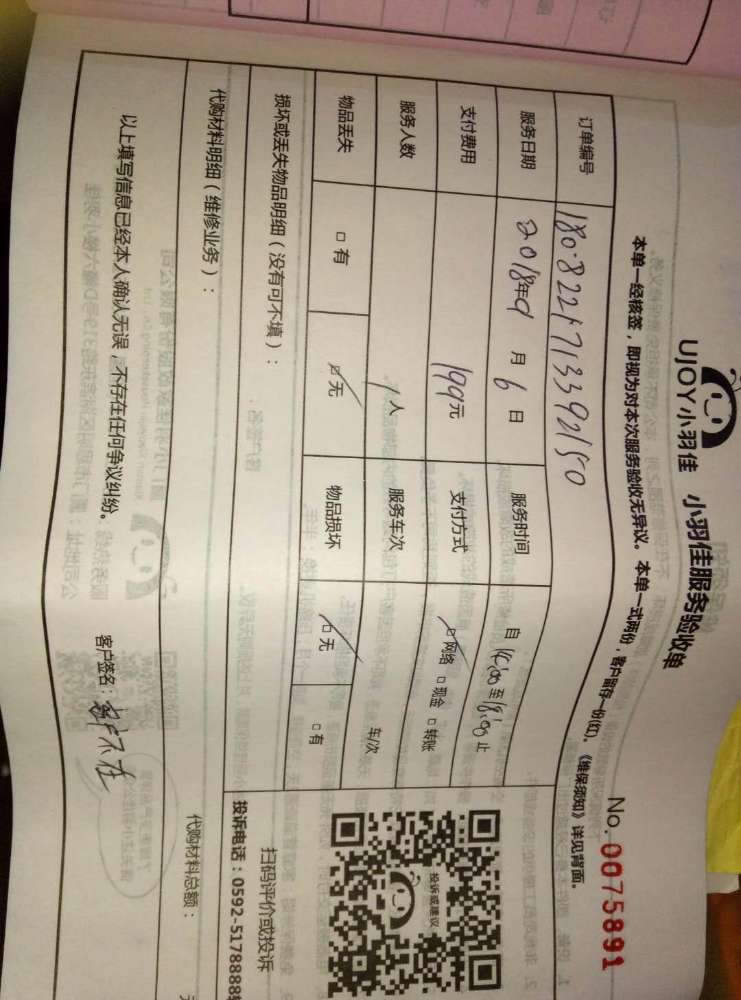 UJOY小羽佳 小羽佳服务验收单
No. 0075891
本单一经核签，即视为对本次服务验收无异议。本单一式两份，客户留存一份(红)。《维保须知》详见背面。
订单编号 1808221713392150
服务日期 2018年9月6日 服务时间 自14:00至18:00止
支付费用 199元 支付方式 ☑网络 □现金 □转账
服务人数 1人 服务车次 车/次
物品丢失 □有 ☑无 物品损坏 ☑无 □有
投诉或建议
损坏或丢失物品明细（没有可不填）：
扫码评价或投诉
投诉电话：0592-5178888转
代购材料明细（维修业务）： 代购材料总额： 元
以上填写信息已经本人确认无误，不存在任何争议纠纷。 客户签名：客户不在